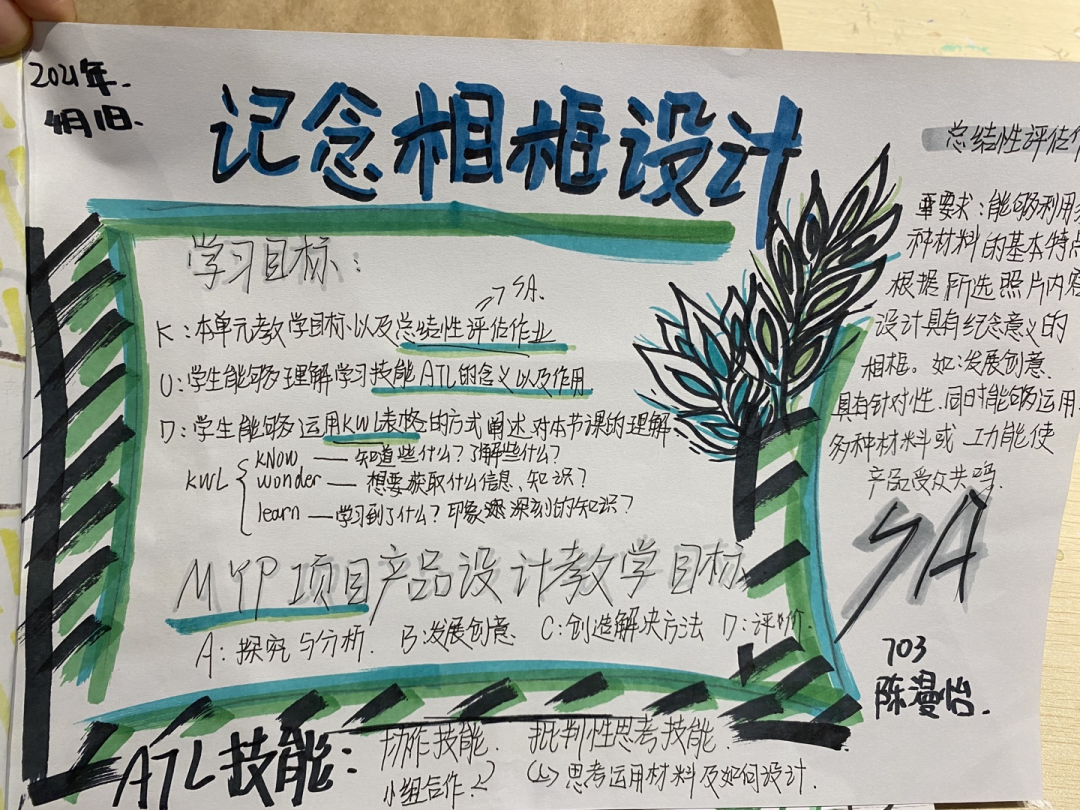 2021年.
4月1日.
记念相框设计
学习目标：
→SA.
K：本单元教学目标以及总结性评估作业
U：学生能够理解学习技能ATL的含义以及作用
D：学生能够运用KWL表格的方式阐述对本节课的理解.
KWL
know — 知道些什么？了解些什么？
wonder — 想要获取什么信息、知识？
learn — 学习到了什么？印象深刻的知识？
MYP项目产品设计教学目标
A：探究与分析. B：发展创意. C：创造解决方法 D：评价.
ATL技能：
协作技能. 批判性思考技能.
小组合作. 思考运用材料及如何设计.
总结性评估作
要求：能够利用
种材料的基本特点
根据所选照片内容
设计具有纪念意义的
相框。如：发展创意.
具有针对性.同时能够运用
多种材料或 功能使
产品受众共鸣.
SA
703
陈漫怡.